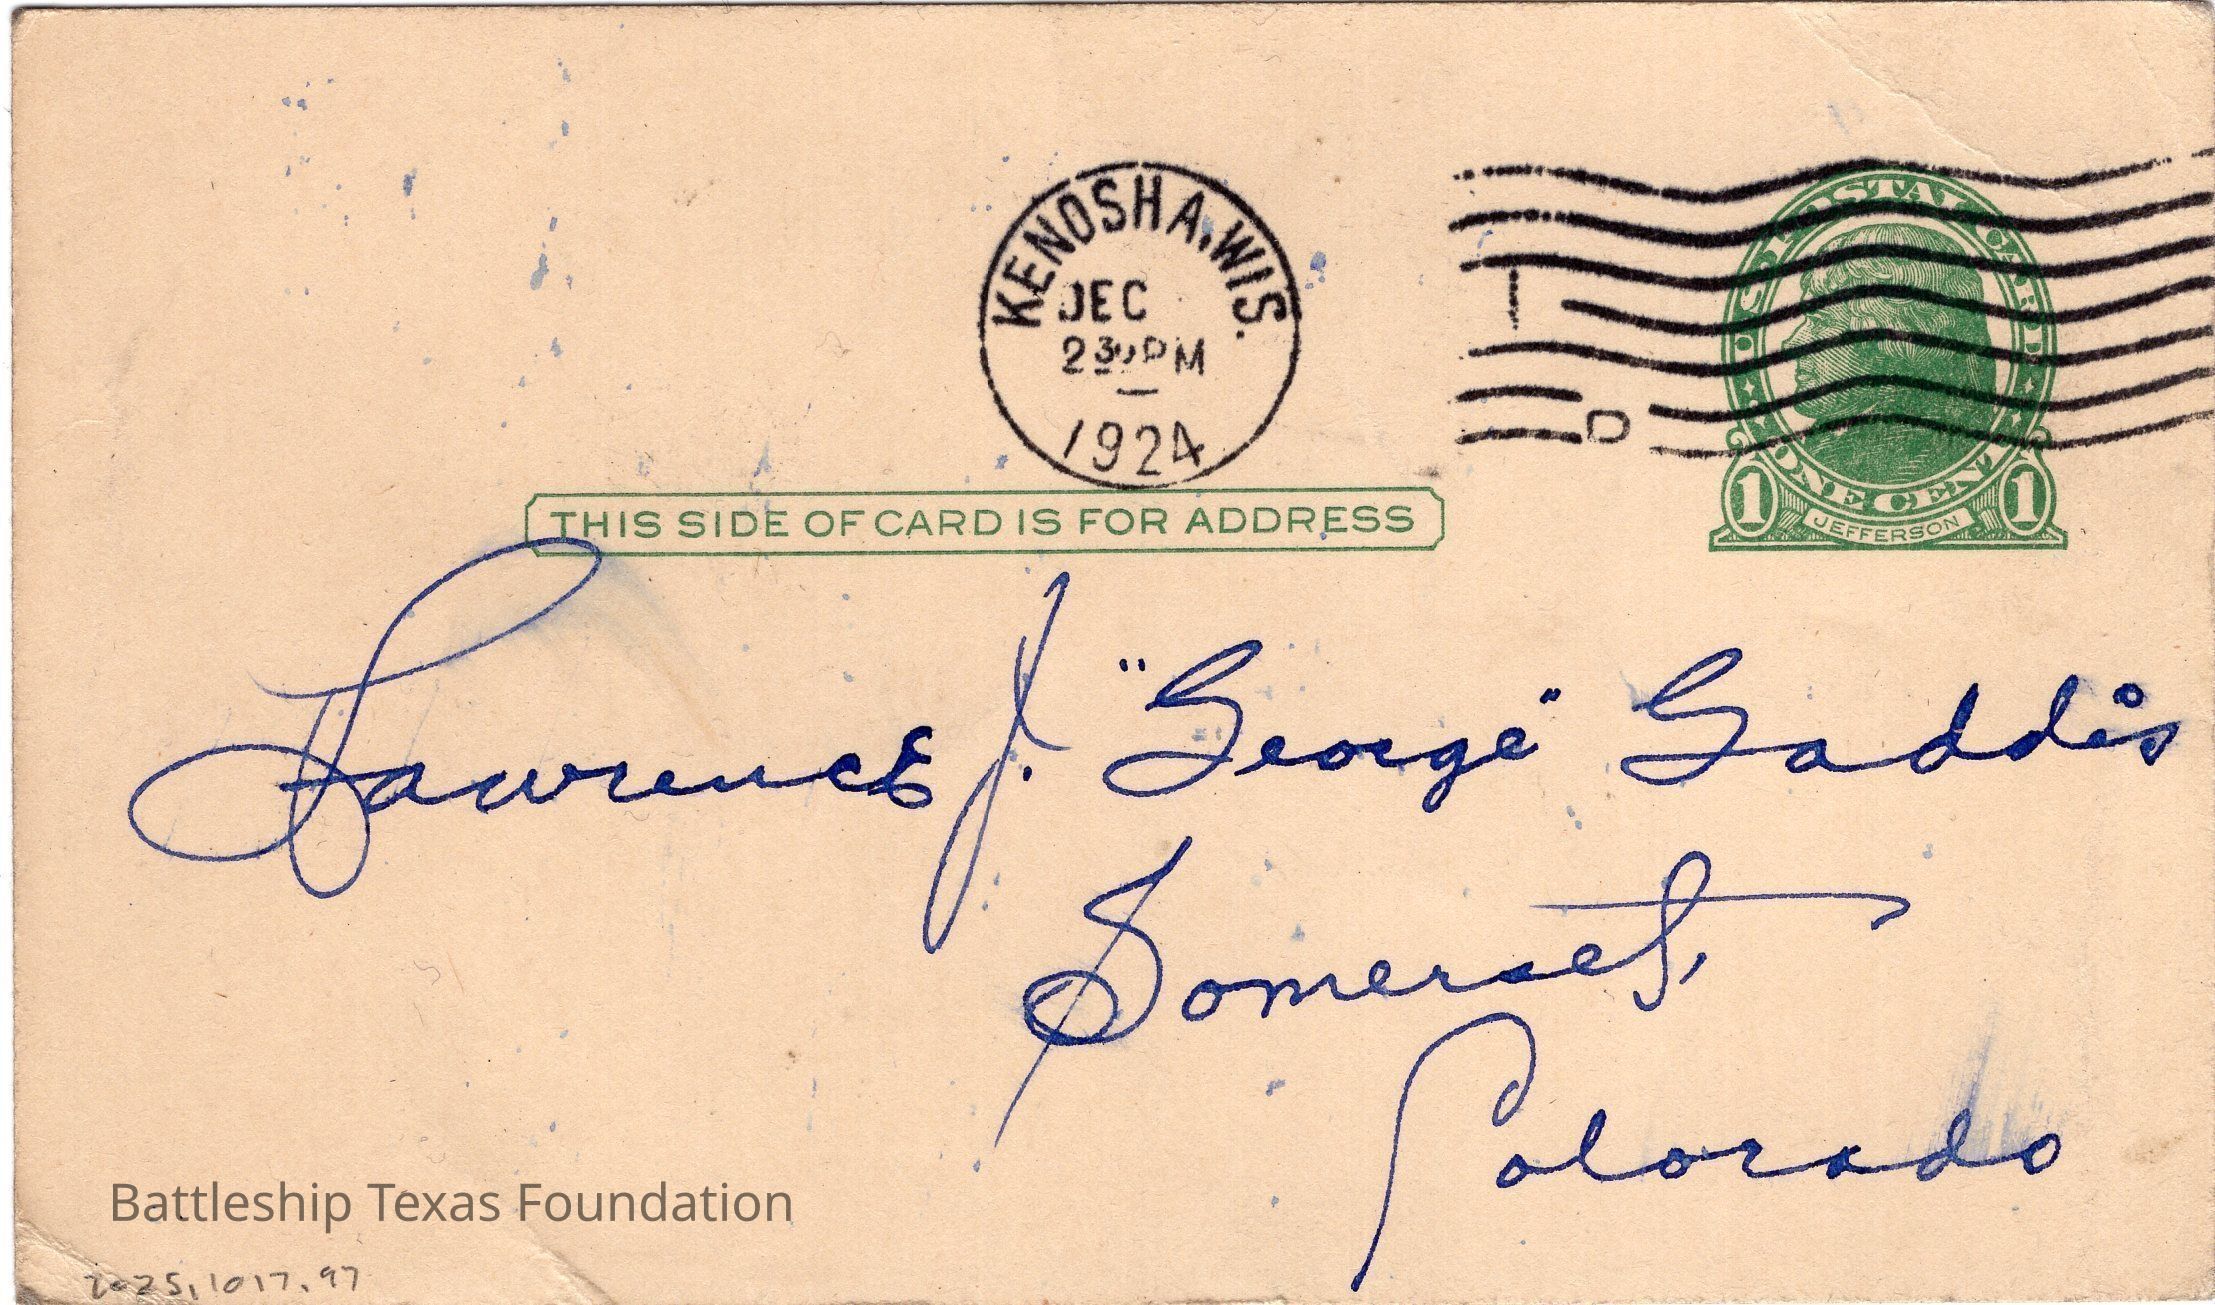 KENOSHA, WIS.
DEC
230 PM
1924
U.S. POSTAL CARD
ONE CENT
1 JEFFERSON 1
THIS SIDE OF CARD IS FOR ADDRESS
Lawrence J. "George" Gaddis
Somerset,
Colorado
Battleship Texas Foundation
2025.1017.97